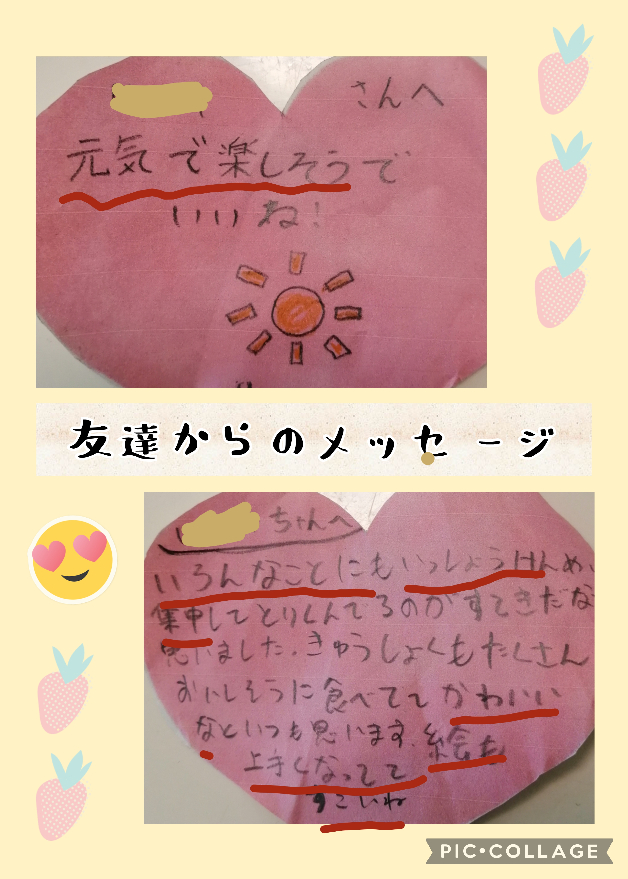 さんへ
元気で楽しそうで
いいね!
友達からのメッセージ
ちゃんへ
いろんなことにもいっしょうけんめい
集中してとりくんでるのがすてきだな
思いました。きゅうしょくもたくさん
おいしそうに食べてて かわいい
なといつも思います。絵も
上手くなってて
すごいね
PIC•COLLAGE